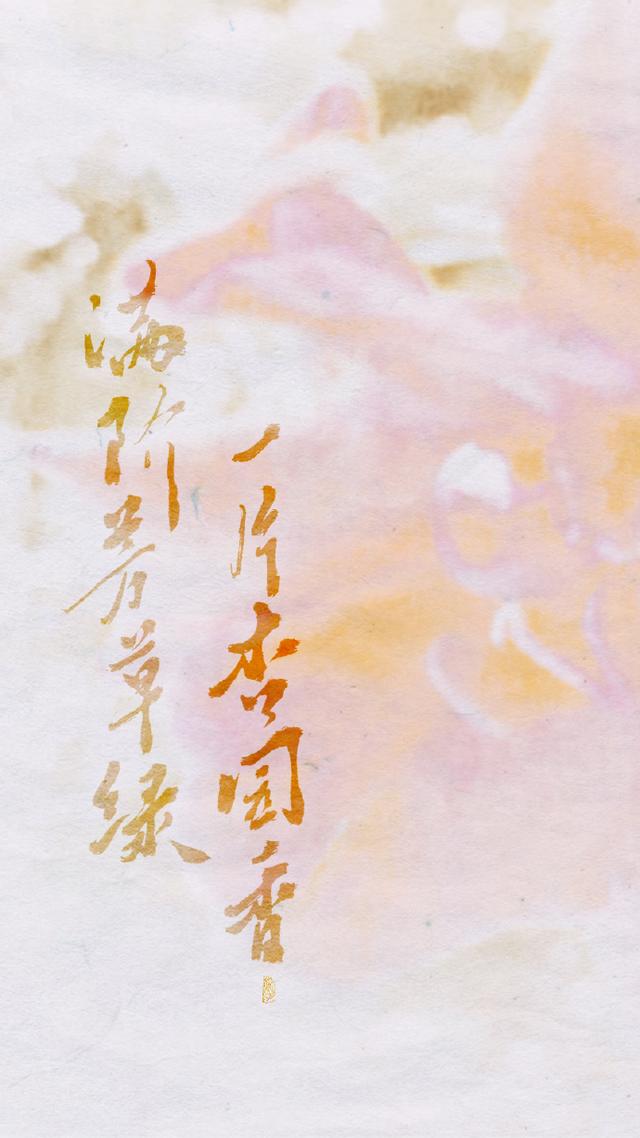 满阶芳草绿
一片杏园香